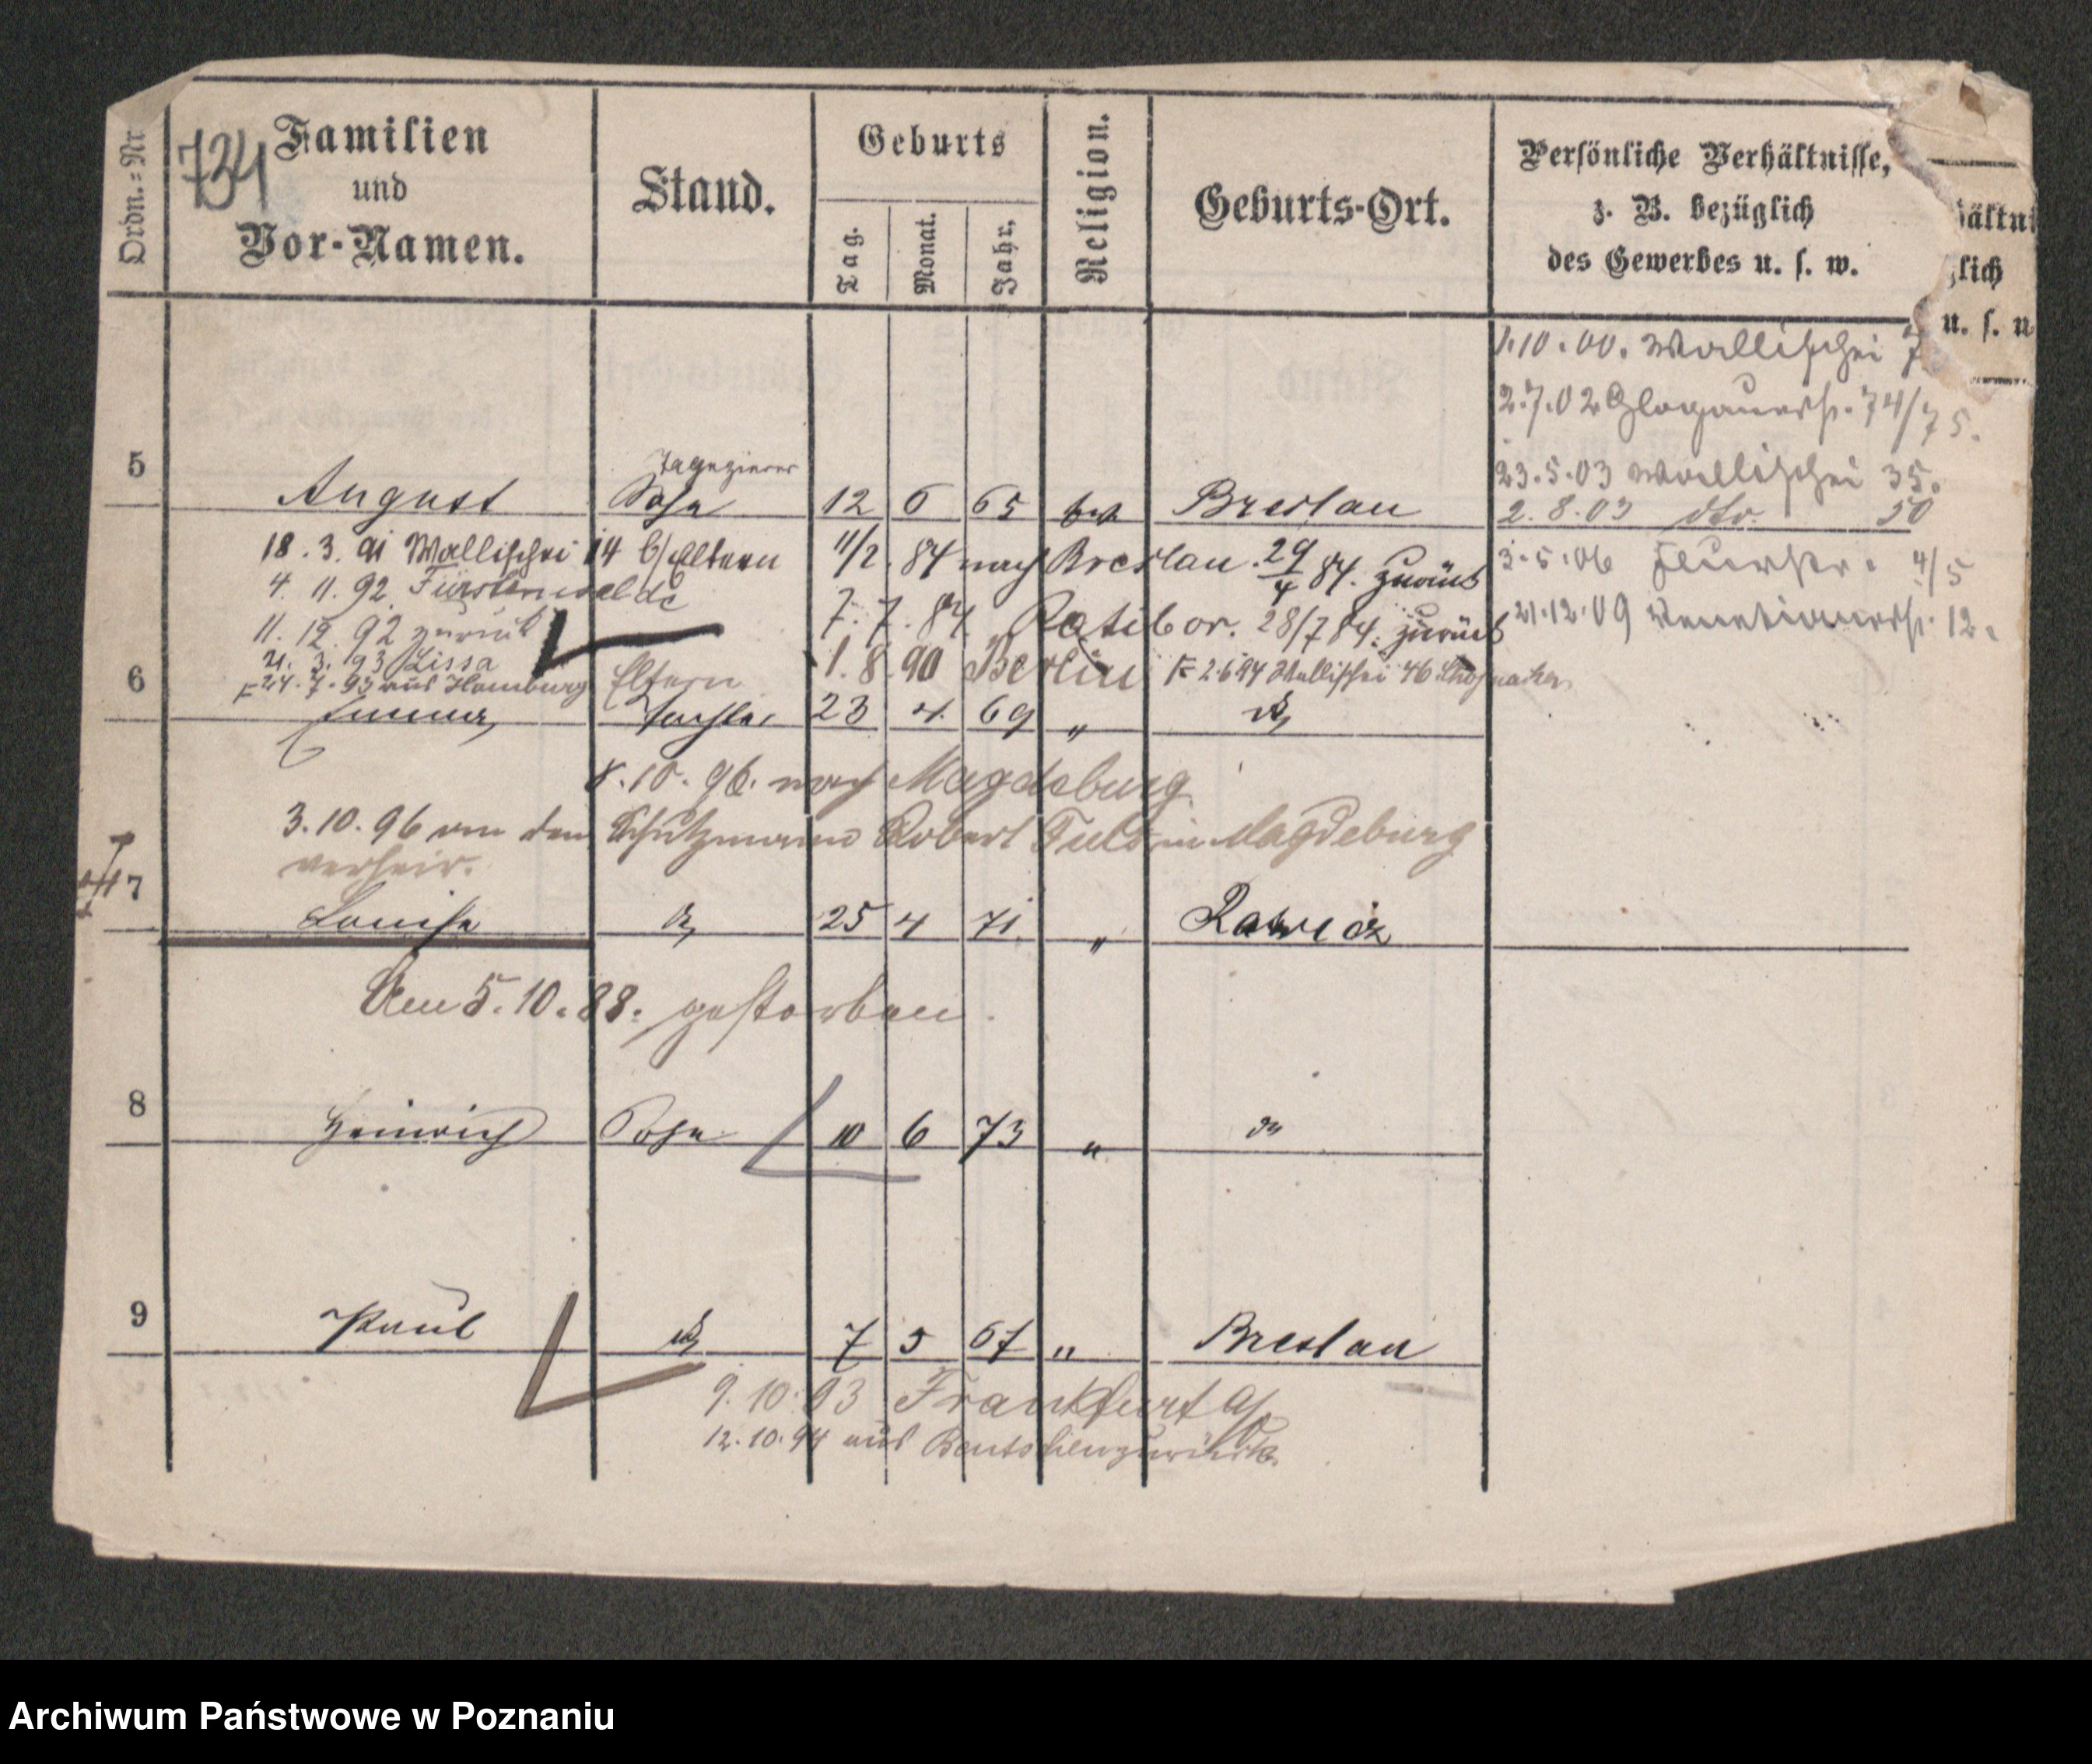 Ordn.-Nr.
734
Familien
und
Vor-Namen.
Stand.
Geburts
Tag.
Monat.
Jahr.
Religion.
Geburts-Ort.
Persönliche Verhältnisse,
z. B. bezüglich
des Gewerbes u. s. w.
hältni
lich
u. s. w
1.10.00. Wallischei
2.7.02 Glogauerstr. 74/75.
23.5.03 Wallischei 35.
2.8.03 dto. 50
3.5.06 4/5
21.12.09 Venetianerstr. 12.
5
Tapezierer
August Sohn 12 6 65 Breslau
18.3.91 Wallischei 14 b/Eltern 11/2. 84 nach Breslau. 29/4 84. zurück
4. 11. 92. Fürstenwalde
7. 7. 84 Ratibor. 28/7 84. zurück
11. 12. 92 zurück
21. 3. 93 Lissa
1. 8. 90 Berlin 2.6.94 Wallischei 46
24. 7. 93 aus Hamburg Eltern
6
Emma Tochter 23 4. 69 "
8.10.96. nach Magdeburg
3.10.96 von dem Schutzmann Robert in Magdeburg
verheir.
7
Louise 25 4 71 " Rawicz
Am 5.10.88. gestorben.
8
Heinrich Sohn 10 6 73 "
9
Paul 7 5 67 " Breslau
9.10.93 Frankfurt a/O
12.10.94 aus Bentschen zurück.
Archiwum Państwowe w Poznaniu